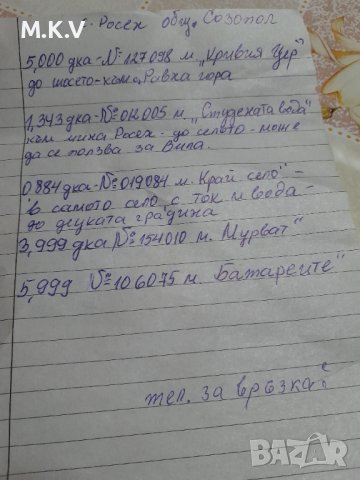 M.K.V
с. Росен общ. Созопол
5,000 дка - № 127098 м. „Кривия Цер"
до шосето - към
1,343 дка - № 012005 м. „Студената вода"
към мина Росен - до селото - може
да се ползва за Вила.
0884 дка - № 019084 м. Край село" -
в самото село с ток и вода -
до децката градина
3,999 дка № 154010 м. Мурват"
5,999 № 106075 м. Батареите"
тел. за връзка:
BAZAR